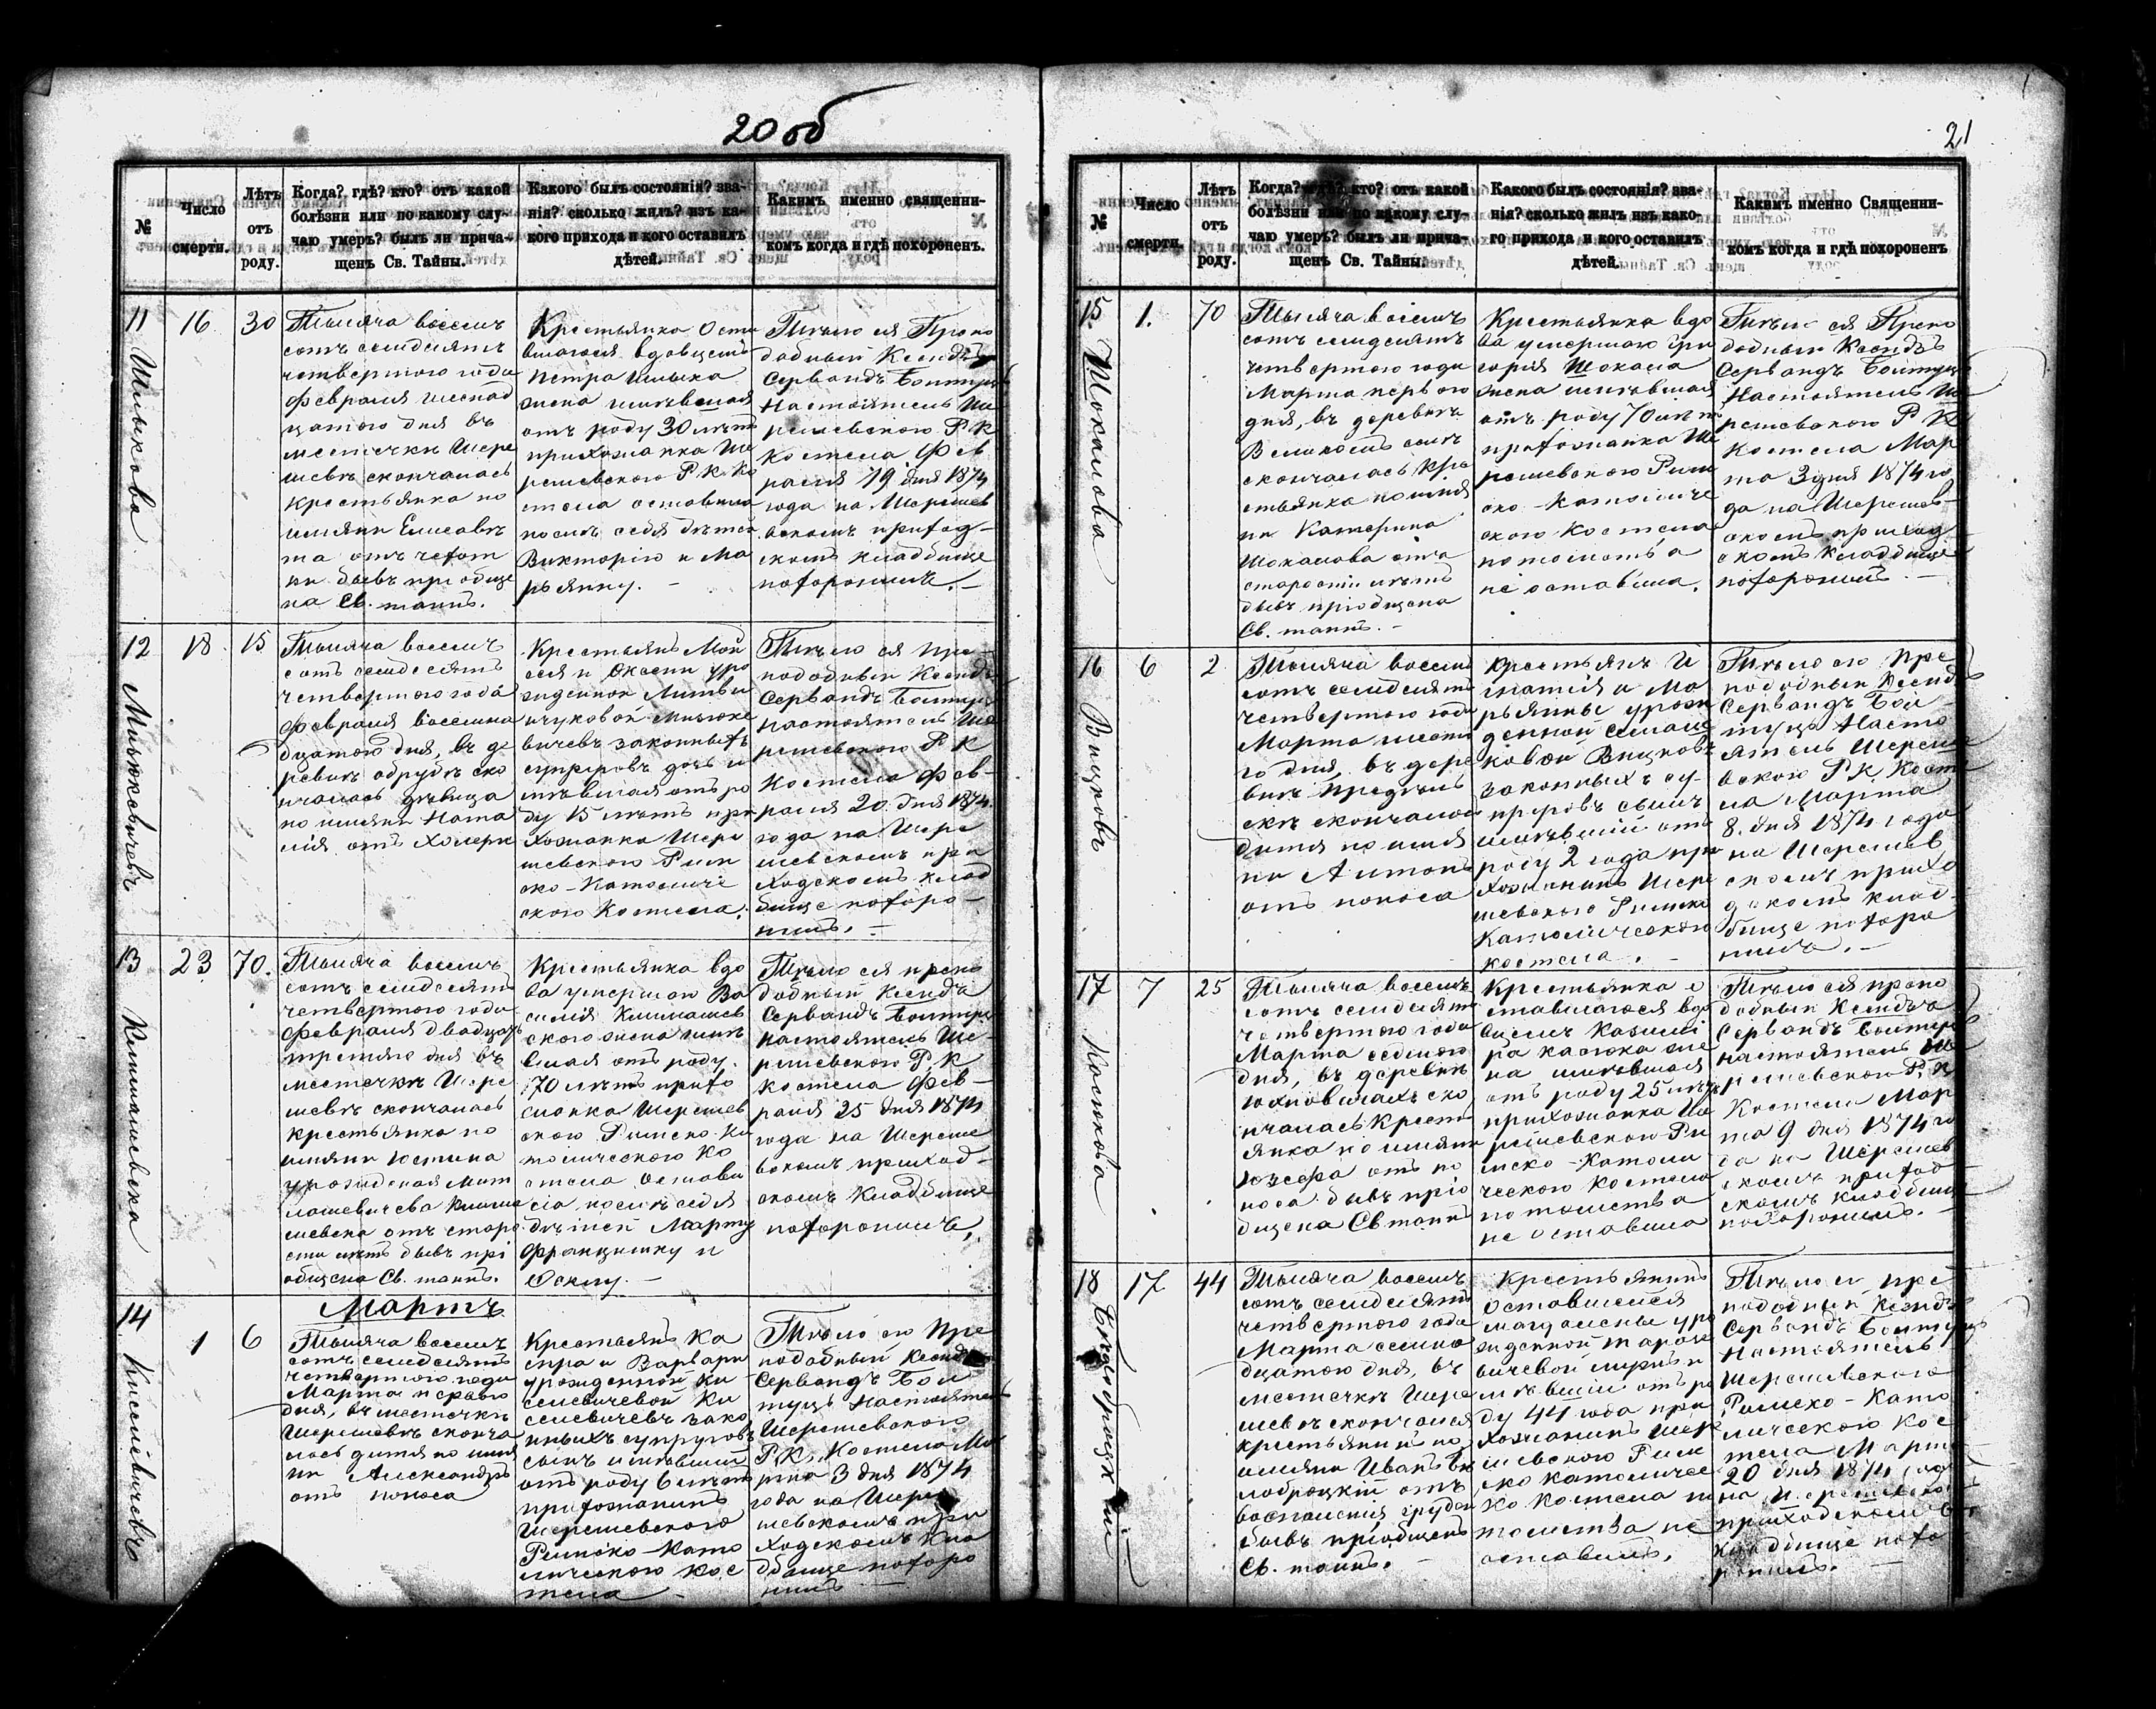 20 об
№
Число
смерти.
Лѣтъ
отъ
роду.
Когда? гдѣ? кто? отъ какой
болѣзни или по какому слу-
чаю умеръ? былъ ли прича-
щенъ Св. Тайны.
Какого былъ состоянія? зва-
нія? сколько жилъ? изъ ка-
кого прихода и кого оставилъ
дѣтей.
Какимъ именно священни-
комъ когда и гдѣ похороненъ.
11
16
30
Тысяча восемь
сотъ семдесятъ
четвертого года
Февраля шеснад
цатого дня въ
местечкѣ Шере
шевѣ скончалась
крестьянка по
имяни Елисаве
та отъ чехот
ки бывъ приобще
на Св. таинъ.
Крестьянка Оста
вшагося вдовцемъ
Петра
жена имѣвшая
отъ роду 30 лѣтъ
прихожанка Ше
решевского Р. К. Ко
стела оставила
послѣ себя дѣтей
Викторію и Ма
рьянну. —
Тѣло ея Препо
добный Ксендзъ
Сервандъ
Настоятель Ше
решевского Р. К
Костела Фев
раля 19 дня 1874
года на Шерешев
вскомъ приход-
скомъ кладбище
похоронилъ. —
12
18
15
Милюковичевъ
Тысяча восемь
сотъ семдесятъ
четвертого года
Февраля восемна
дцатого дня, въ де
ревне обрубѣ ско
нчалась дѣвица
по имяни Ната
лія отъ холеры
Крестьянъ Мой
сея и Оксени уро
жденной
вичевъ законныхъ
супруговъ дочь и
мѣвшая отъ ро
ду 15 лѣтъ при
хожанка Шере
шевского Рим
ско-Католиче
ского Костела.
Тѣло ея пре
подобный Ксендзъ
Сервандъ
настоятель Ше
решевского Р К
Костела Фев-
раля 20 дня 1874
года на Шере
шевскомъ при
ходскомъ клад
бище похоро-
нилъ. —
13
23
70.
Климашевска
Тысяча восемь
сотъ семдесятъ
четвертого года
Февраля двадцать
третяго дня въ
местечкѣ Шере
шевѣ скончалась
крестьянка по
имяни Юстина
урожденная Мит
лашевичева Клима
шевска отъ старо
сти лѣтъ бывъ прі
общена Св. таинъ.
Крестьянка вдо
ва умершаго Ва
силія Климашев
ского жена имѣ
вшая отъ роду
70 лѣтъ прихо
жанка Шерешев
ского Римско-Ка
толического Ко
стела Остави
ла послѣ себя
дѣтей Марту
Францишку и
Осипу. —
Тѣло ея препо
добный Ксендзъ
Сервандъ
настоятель Ше-
решевского Р. К
костела Фев-
раля 25 дня 1874
года на Шереше
вскомъ приход-
скомъ кладбище
похоронилъ.
Мартъ
14
1
6
Киселевичевъ
Тысяча восемь
сотъ семдесятъ
четвертого года
Марта первого
дня, въ местечкѣ
Шерешевѣ сконча
лось дитя по имя
ни Александръ
отъ поноса
Крестьянъ Ка
спра и Варвары
урожденной Ки
селевичевой Ки
селевичевъ зако
нныхъ супруговъ
сынъ имѣвшій
отъ роду 6 лѣтъ
прихожанинъ
Шерешевского
Римско-Като
лического Кос
тела —
Тѣло его Пре
подобный Ксендзъ
Сервандъ
Настоятель
Шерешевского
Р. К. Костела Ма
рта 3 дня 1874
года на Шере
шевскомъ при
ходскомъ кла
дбище похоро
нилъ —
21
№
Число
смерти.
Лѣтъ
отъ
роду.
Когда? гдѣ? кто? отъ какой
болѣзни или по какому слу-
чаю умеръ? былъ ли прича-
щенъ Св. Тайны.
Какого былъ состоянія? зва-
нія? сколько жилъ изъ како-
го прихода и кого оставилъ
дѣтей.
Какимъ именно Священни-
комъ когда и гдѣ похороненъ
15.
1.
70
Шокалова
Тысяча восемь
сотъ семдесятъ
четвертого года
Марта первого
дня, въ деревнѣ
скончалась кре
стьянка по имя
ни Катерина
Шокалова отъ
старости лѣтъ
бывъ пріобщена
Св. таинъ. —
Крестьянка вдо
ва умершаго Гри
горія Шокала
жена имѣвшая
отъ роду 70 лѣтъ
прихожанка Ше
решевского Рим
ско-Католиче
ского Костела
потомства
не оставила.
Тѣло ея Препо
добный Ксендзъ
Сервандъ
Настоятель Ше
решевского Р К
Костела Мар
та 3 дня 1874 го
да на Шерешев-
скомъ приход
скомъ кладбище
похоронилъ. —
16
6
2
Вицковъ
Тысяча восемь
сотъ семдесятъ
четвертого года
Марта шесто
го дня, въ дере
внѣ
скончалось
дитя по имя
ни Антонъ
отъ поноса
Крестьянъ И
гнатія и Ма
рьянны урож
денной
Вицковъ
законныхъ су-
пруговъ сынъ
имѣвшій отъ
роду 2 года при
хожанинъ Шере
шевского Римско
Католического
костела. —
Тѣло его Пре
подобный Ксендзъ
Сервандъ
Насто
ятель Шереше
вского Р. К. Косте
ла Марта
8. дня 1874 года
на Шерешев
скомъ прихо
дскомъ клад-
бище похоро
нилъ. —
17
7
25
Касюкова
Тысяча восемь
сотъ семдесятъ
четвертого года
Марта седмого
дня, въ деревнѣ
Юхновичахъ ско
нчалась Кресть
янка по имяни
Юзефа отъ по
носа бывъ пріо
бщена Св таинъ
Крестьянка о
ставшагося вдо
вцемъ Казимі
ра Касюка же
на имѣвшая
отъ роду 25 лѣтъ
прихожанка Ше
решевского Ри
мско-Католи
ческого Костела
потомства
не оставила
Тѣло ея препо
добный Ксендзъ
Сервандъ
настоятель Ше
решевского Р. К
Костела Мар
та 9 дня 1874 го
да на Шерешев
скомъ приход
скомъ кладбище
похоронилъ. —
18
17
44
Тысяча восемь
сотъ семдесятъ
четвертого года
Марта семна
дцатого дня, въ
местечкѣ Шере
шевѣ скончался
крестьянинъ по
имяни Иванъ
отъ
воспаленія груди
бывъ пріобщенъ
Св. таинъ. —
Крестьянинъ
оставшейся
Магдалены уро
жденной
мужъ и
мѣвшій отъ ро
ду 44 года при
хожанинъ Шере
шевского Рим
ско католичес
ко Костела по
томства не
оставилъ.
Тѣло его пре
подобный Ксендзъ
Сервандъ
Настоятель
Шерешевского
Римско-Като
лического Кос
тела Марта
20 дня 1874 года
на Шерешевско
приходскомъ
кладбище похо
ронилъ. —